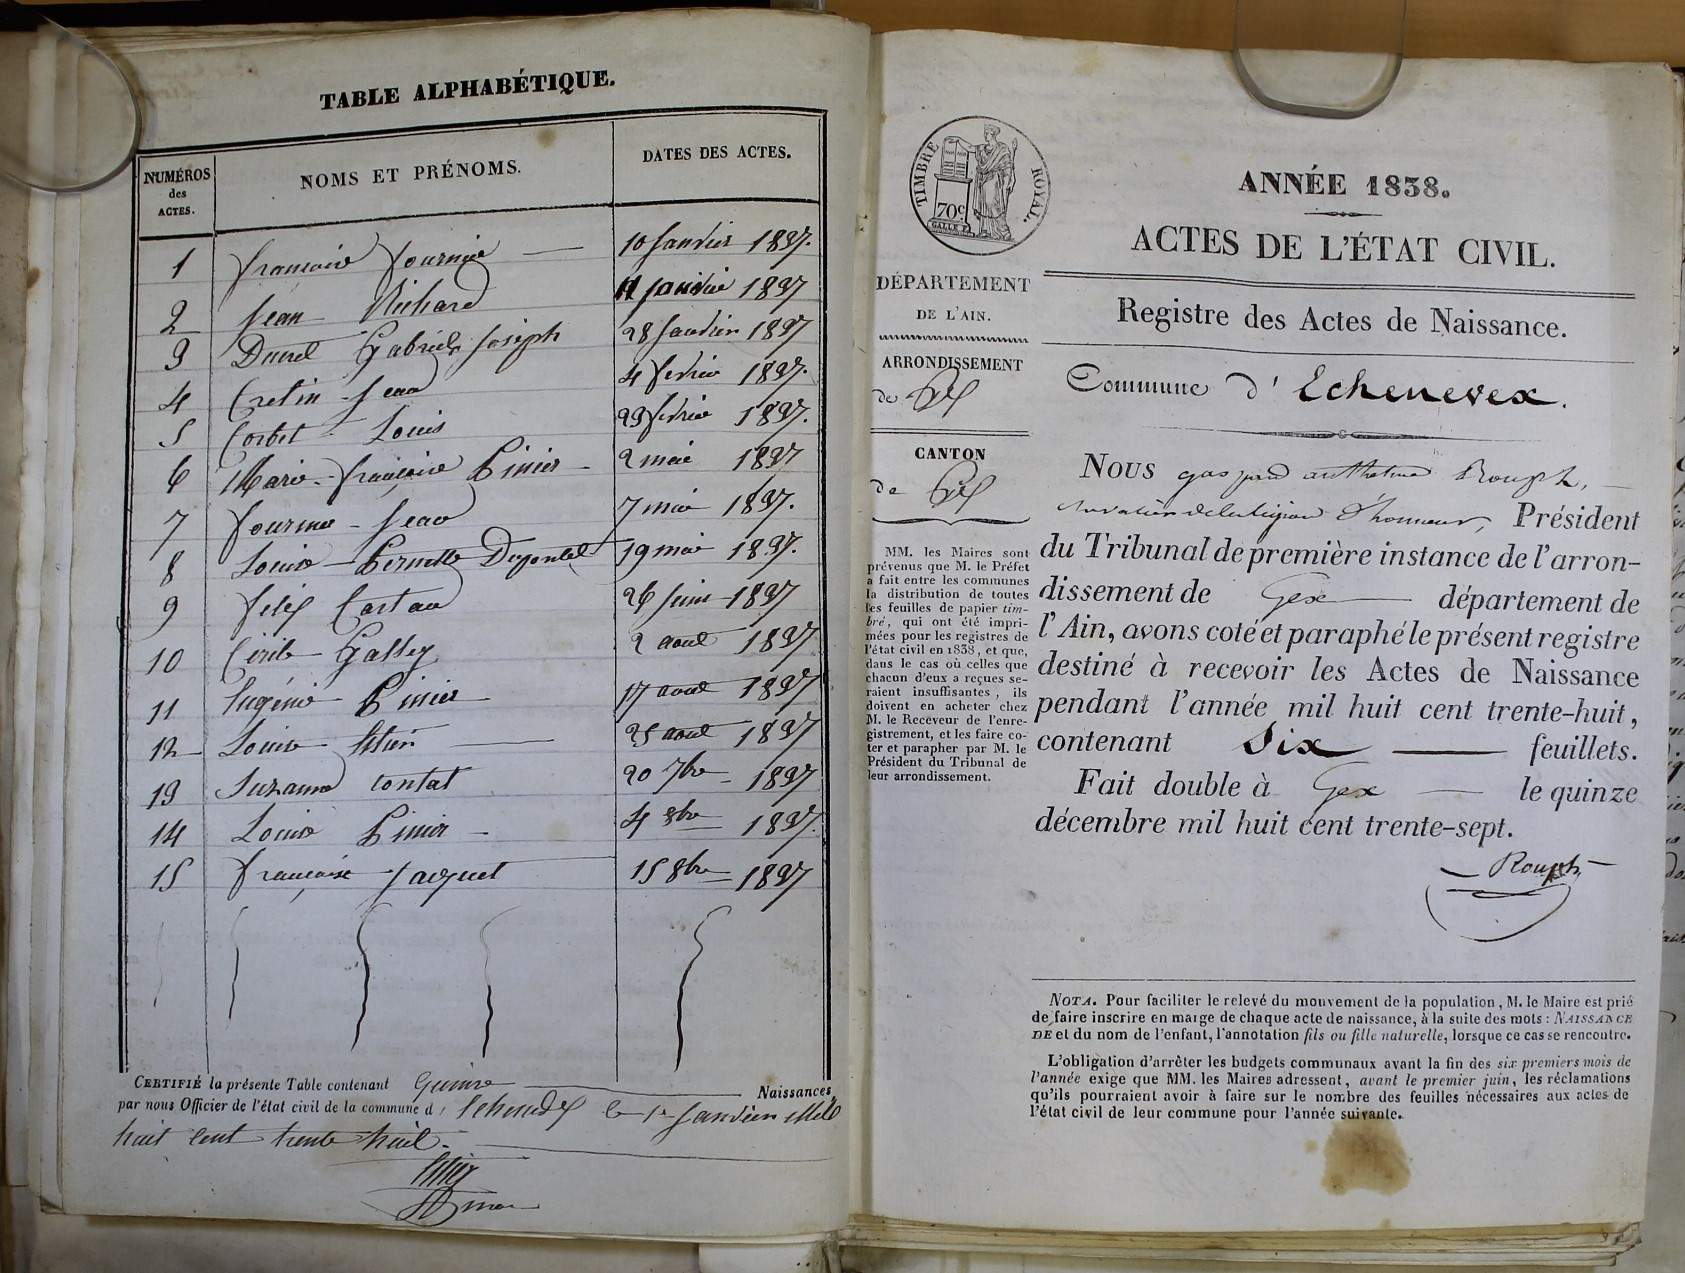 TABLE ALPHABÉTIQUE.
NUMÉROS des ACTES. NOMS ET PRÉNOMS. DATES DES ACTES.
1 françoise fournier 10 Janvier 1837.
2 Jean Richard 11 janvier 1837
3 Gabriel Joseph 28 Janvier 1837
4 Cretin Jean 4 fevrier 1837.
5 Corbet Louis 23 fevrier 1837.
6 Marie-françoise 2 mai 1837
7 fournier Jean 7 mai 1837.
8 Louise Pernette 19 mai 1837.
9 26 Juin 1837
10 Cécile 2 aout 1837
11 Eugénie 17 aout 1837
12 Louise 25 aout 1837
13 Suzanne Contat 20 7bre 1837
14 Louise 4 8bre 1837.
15 françoise Jacquet 15 8bre 1837
CERTIFIÉ la présente Table contenant Quinze Naissances,
par nous Officier de l'état civil de la commune d' Echenevex le 1er Janvier Mil
huit cent trente huit.
TIMBRE ROYAL.
70c
ANNÉE 1838.
ACTES DE L'ÉTAT CIVIL.
Registre des Actes de Naissance.
Commune d' Echenevex.
DÉPARTEMENT
DE L'AIN.
ARRONDISSEMENT
de Gex
CANTON
de Gex
MM. les Maires sont
prévenus que M. le Préfet
a fait entre les communes
la distribution de toutes
les feuilles de papier tim-
bré, qui ont été impri-
mées pour les registres de
l'état civil en 1838, et que,
dans le cas où celles que
chacun d'eux a reçues se-
raient insuffisantes, ils
doivent en acheter chez
M. le Receveur de l'enre-
gistrement, et les faire co-
ter et parapher par M. le
Président du Tribunal de
leur arrondissement.
NOUS gaspard anthelme Rouph,
chevalier de la légion d'honneur, Président
du Tribunal de première instance de l'arron-
dissement de Gex département de
l'Ain, avons coté et paraphé le présent registre
destiné à recevoir les Actes de Naissance
pendant l'année mil huit cent trente-huit,
contenant Six feuillets.
Fait double à Gex le quinze
décembre mil huit cent trente-sept.
Rouph
NOTA. Pour faciliter le relevé du mouvement de la population, M. le Maire est prié
de faire inscrire en marge de chaque acte de naissance, à la suite des mots : NAISSANCE
DE et du nom de l'enfant, l'annotation fils ou fille naturelle, lorsque ce cas se rencontre.
L'obligation d'arrêter les budgets communaux avant la fin des six premiers mois de
l'année exige que MM. les Maires adressent, avant le premier juin, les réclamations
qu'ils pourraient avoir à faire sur le nombre des feuilles nécessaires aux actes de
l'état civil de leur commune pour l'année suivante.